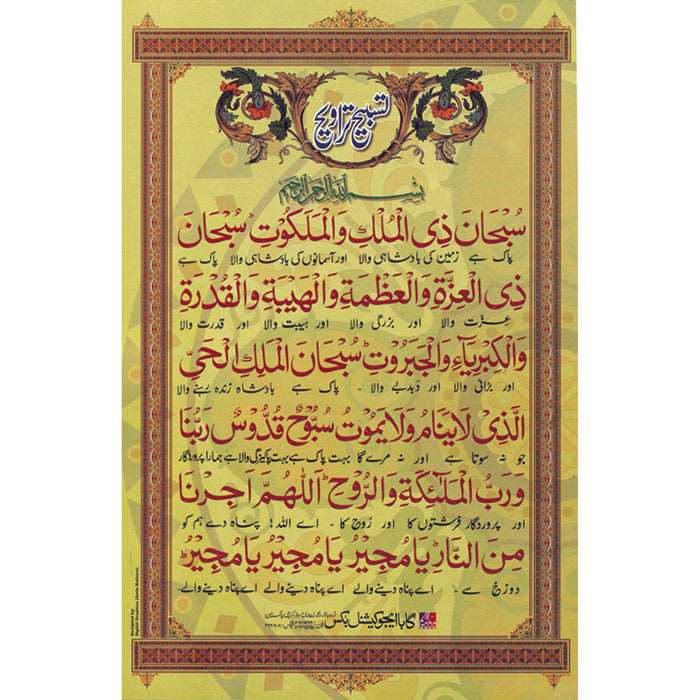 تسبیح تراویح
بسم اللہ الرحمن الرحیم
سُبْحَانَ ذِی الْمُلْكِ وَالْمَلَكُوْتِ ط سُبْحَانَ
پاک ہے زمین کی بادشاہی والا اور آسمانوں کی بادشاہی والا پاک ہے
ذِی الْعِزَّةِ وَالْعَظَمَةِ وَالْهَیْبَةِ وَالْقُدْرَةِ
عزّت والا اور بزرگی والا اور ہیبت والا اور قدرت والا
وَالْكِبْرِیَآءِ وَالْجَبَرُوْتِ ط سُبْحَانَ الْمَلِكِ الْحَیِّ
اور بڑائی والا اور دَبدبے والا ۔ پاک ہے بادشاہ زندہ رہنے والا
الَّذِیْ لَایَنَامُ وَلَایَمُوْتُ سُبُّوْحٌ قُدُّوْسٌ رَبُّنَا
جو نہ سوتا ہے اور نہ مرے گا بہت پاک ہے بہت پاکیزگی والا ہے ہمارا پروردگار
وَرَبُّ الْمَلٰٓئِكَةِ وَالرُّوْحِ ط اَللّٰهُمَّ اَجِرْنَا
اور پروردگار فرشتوں کا اور رُوح کا ۔ اے اللہ! پناہ دے ہم کو
مِنَ النَّارِ ط یَامُجِیْرُ یَامُجِیْرُ یَامُجِیْرُ ط
دوزخ سے ۔ اے پناہ دینے والے اے پناہ دینے والے اے پناہ دینے والے۔
گابا ایجوکیشنل بکس